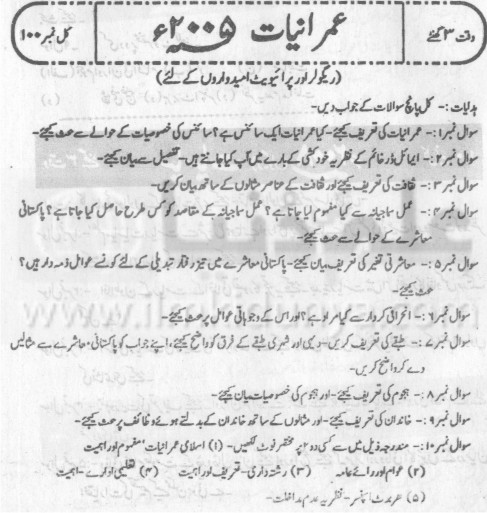 وقت ۳ گھنٹے
عمرانیات ۲۰۰۵ء
کل نمبر ۱۰۰
(ریگولر اور پرائیویٹ امیدواروں کے لئے)
ہدایات:- کل پانچ سوالات کے جواب دیں-
سوال نمبر۱:- عمرانیات کی تعریف کیجئے- کیا عمرانیات ایک سائنس ہے؟ سائنس کی خصوصیات کے حوالے سے بحث کیجئے-
سوال نمبر۲:- ایمائل ڈرخائم کے نظریہ خودکشی کے بارے میں آپ کیا جانتے ہیں- تفصیل سے بیان کیجئے-
سوال نمبر۳:- ثقافت کی تعریف کیجئے اور ثقافت کے عناصر مثالوں کے ساتھ بیان کریں-
سوال نمبر۴:- عمل سماجیانہ سے کیا مفہوم لیا جاتا ہے؟ عمل سماجیانہ کے مقاصد کو کس طرح حاصل کیا جاتا ہے؟ پاکستانی
معاشرے کے حوالے سے بحث کیجئے-
سوال نمبر۵:- معاشرتی تغیر کی تعریف بیان کیجئے- پاکستانی معاشرے میں تیز رفتار تبدیلی کے لئے کونسے عوامل ذمہ دار ہیں؟
بحث کیجئے-
سوال نمبر۶:- انحرافی کردار سے کیا مراد ہے؟ اور اس کے وجوہاتی عوامل پر بحث کیجئے-
سوال نمبر۷:- طبقے کی تعریف کریں- دیہی اور شہری طبقے کے فرق کو واضح کیجئے، اپنے جواب کو پاکستانی معاشرے سے مثالیں
دے کر واضح کریں-
سوال نمبر۸:- ہجوم کی تعریف کیجئے- اور ہجوم کی خصوصیات بیان کیجئے-
سوال نمبر۹:- خاندان کی تعریف کریں- اور مثالوں کے ساتھ خاندان کے بدلتے ہوئے وظائف پر بحث کیجئے-
سوال نمبر۱۰:- مندرجہ ذیل میں سے کسی دو ۲ پر مختصر نوٹ لکھیں- (۱) اسلامی عمرانیات' مفہوم اور اہمیت
(۲) عوام اور رائے عامہ (۳) رشتہ داری- تعریف اور اہمیت (۴) تعلیمی ادارے- اہمیت
(۵) ہربرٹ اسپنسر- نظریہ عدم مداخلت-